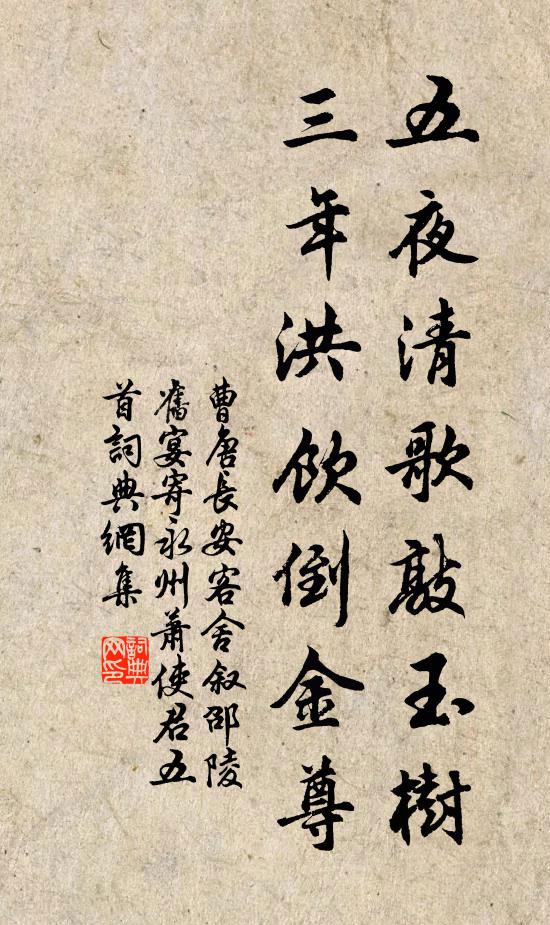 五夜清歌敲玉樹
三年洪飲倒金尊
曹唐長安客舍叙邵陵
舊宴寄永州蕭使君五
首詞典網集
詞典网印